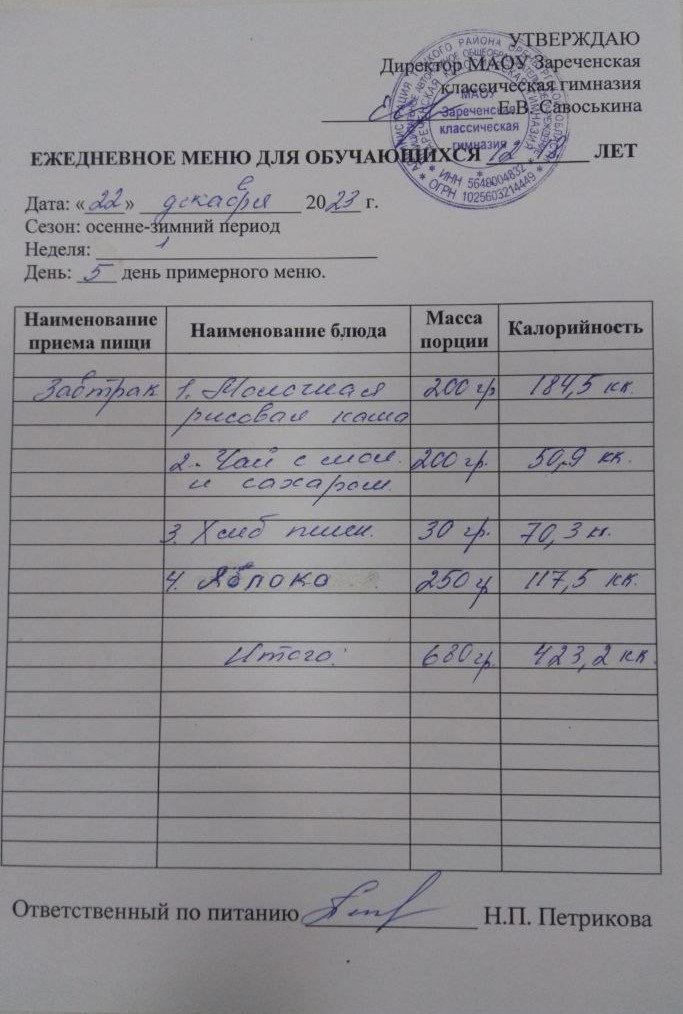 УТВЕРЖДАЮ
Директор МАОУ Зареченская
классическая гимназия
Е.В. Савоськина
МАОУ
Зареченская
классическая
гимназия
ИНН 5649004832
ОГРН 1025603214449
ЕЖЕДНЕВНОЕ МЕНЮ ДЛЯ ОБУЧАЮЩИХСЯ 12 - 18 ЛЕТ
Дата: «22» декабря 2023 г.
Сезон: осенне-зимний период
Неделя: 1
День: 5 день примерного меню.
Наименование приема пищи Наименование блюда Масса порции Калорийность
Завтрак 1. Молочная 200 гр 184,5 кк.
рисовая каша
2. Чай с мол. 200 гр. 50,9 кк.
и сахаром.
3. Хлеб пшен. 30 гр. 70,3 кк.
4. Яблоко 250 г 117,5 кк.
Итого: 680 гр. 423,2 кк.
Ответственный по питанию Н.П. Петрикова